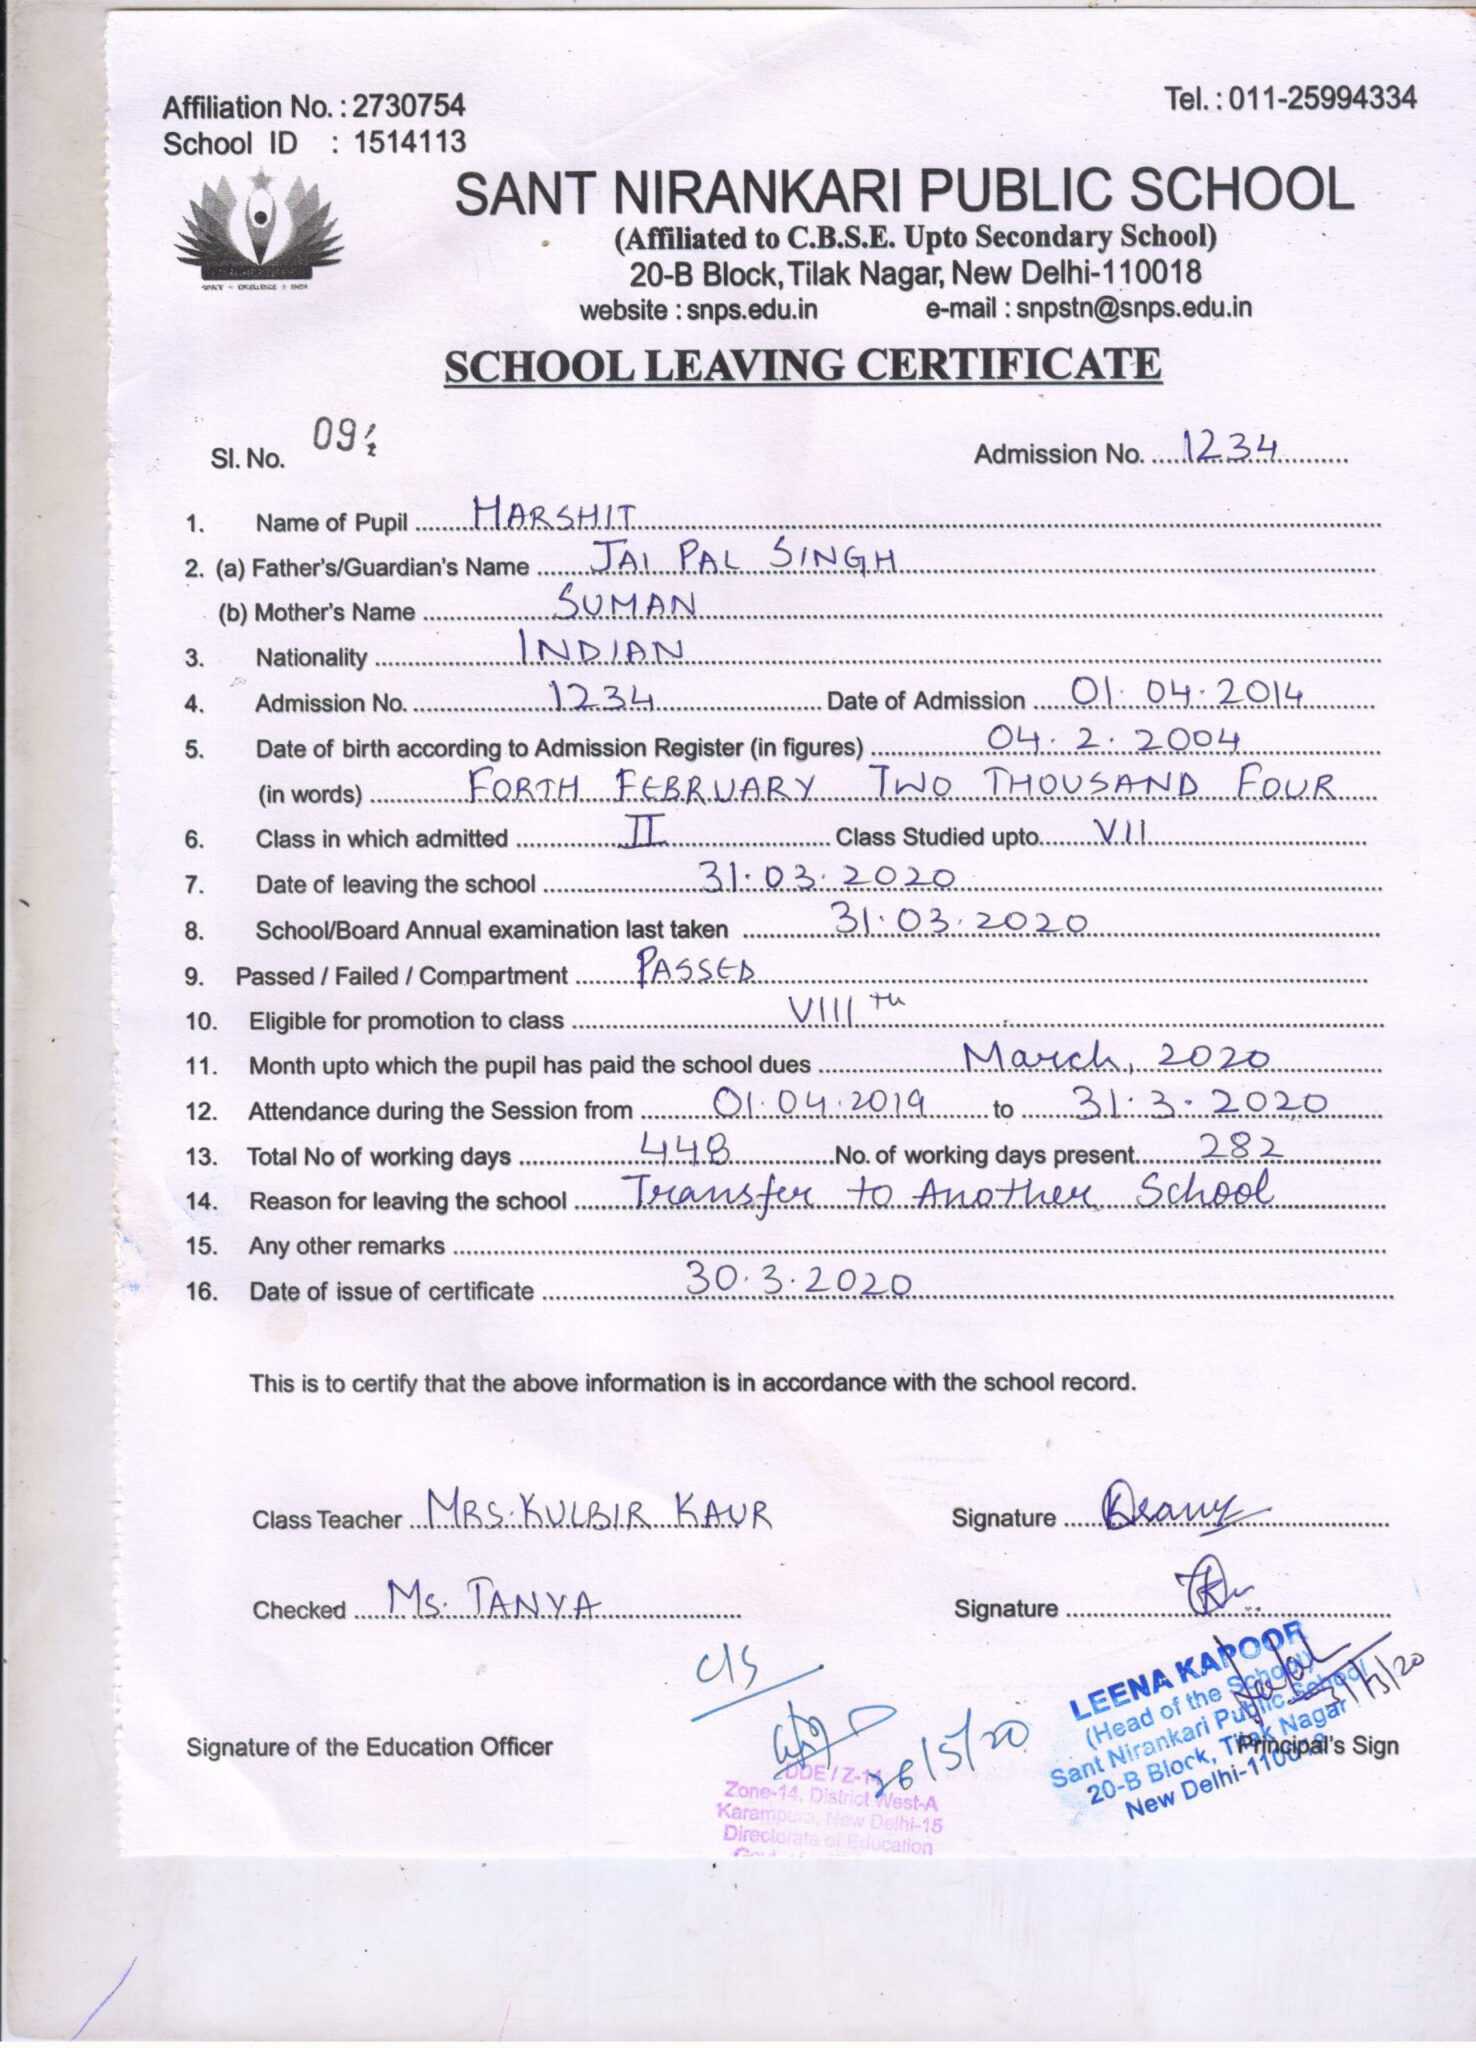 Affiliation No. : 2730754
Tel. : 011-25994334
School ID : 1514113
SANT NIRANKARI PUBLIC SCHOOL
(Affiliated to C.B.S.E. Upto Secondary School)
20-B Block, Tilak Nagar, New Delhi-110018
website : snps.edu.in e-mail : snpstn@snps.edu.in
SCHOOL LEAVING CERTIFICATE
Sl. No. Admission No. 1234
1. Name of Pupil HARSHIT
2. (a) Father's/Guardian's Name JAI PAL SINGH
(b) Mother's Name SUMAN
3. Nationality INDIAN
4. Admission No. 1234 Date of Admission 01.04.2014
5. Date of birth according to Admission Register (in figures) 04.2.2004
(in words) FORTH FEBRUARY TWO THOUSAND FOUR
6. Class in which admitted II Class Studied upto VII
7. Date of leaving the school 31.03.2020
8. School/Board Annual examination last taken 31.03.2020
9. Passed / Failed / Compartment PASSED
10. Eligible for promotion to class VIII th
11. Month upto which the pupil has paid the school dues March, 2020
12. Attendance during the Session from 01.04.2019 to 31.3.2020
13. Total No of working days 448 No. of working days present 282
14. Reason for leaving the school Transfer to Another School
15. Any other remarks
16. Date of issue of certificate 30.3.2020
This is to certify that the above information is in accordance with the school record.
Class Teacher MRS. KULBIR KAUR Signature
Checked Ms. TANYA Signature
C/S
LEENA KAPOOR
(Head of the School)
Sant Nirankari Public School
20-B Block, Tilak Nagar
New Delhi-110018
Signature of the Education Officer
26/5/20
Principal's Sign
DDE / Z-14
Zone-14, District West-A
Karampura, New Delhi-15
Directorate of Education